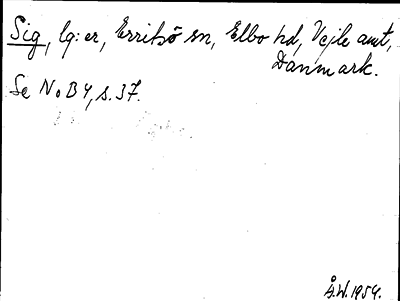 Sig, lg:er, Erritsö sn, Elbo hd, Vejle amt,
Danmark.
Se NoB4, s.37.
Å.W.1954.